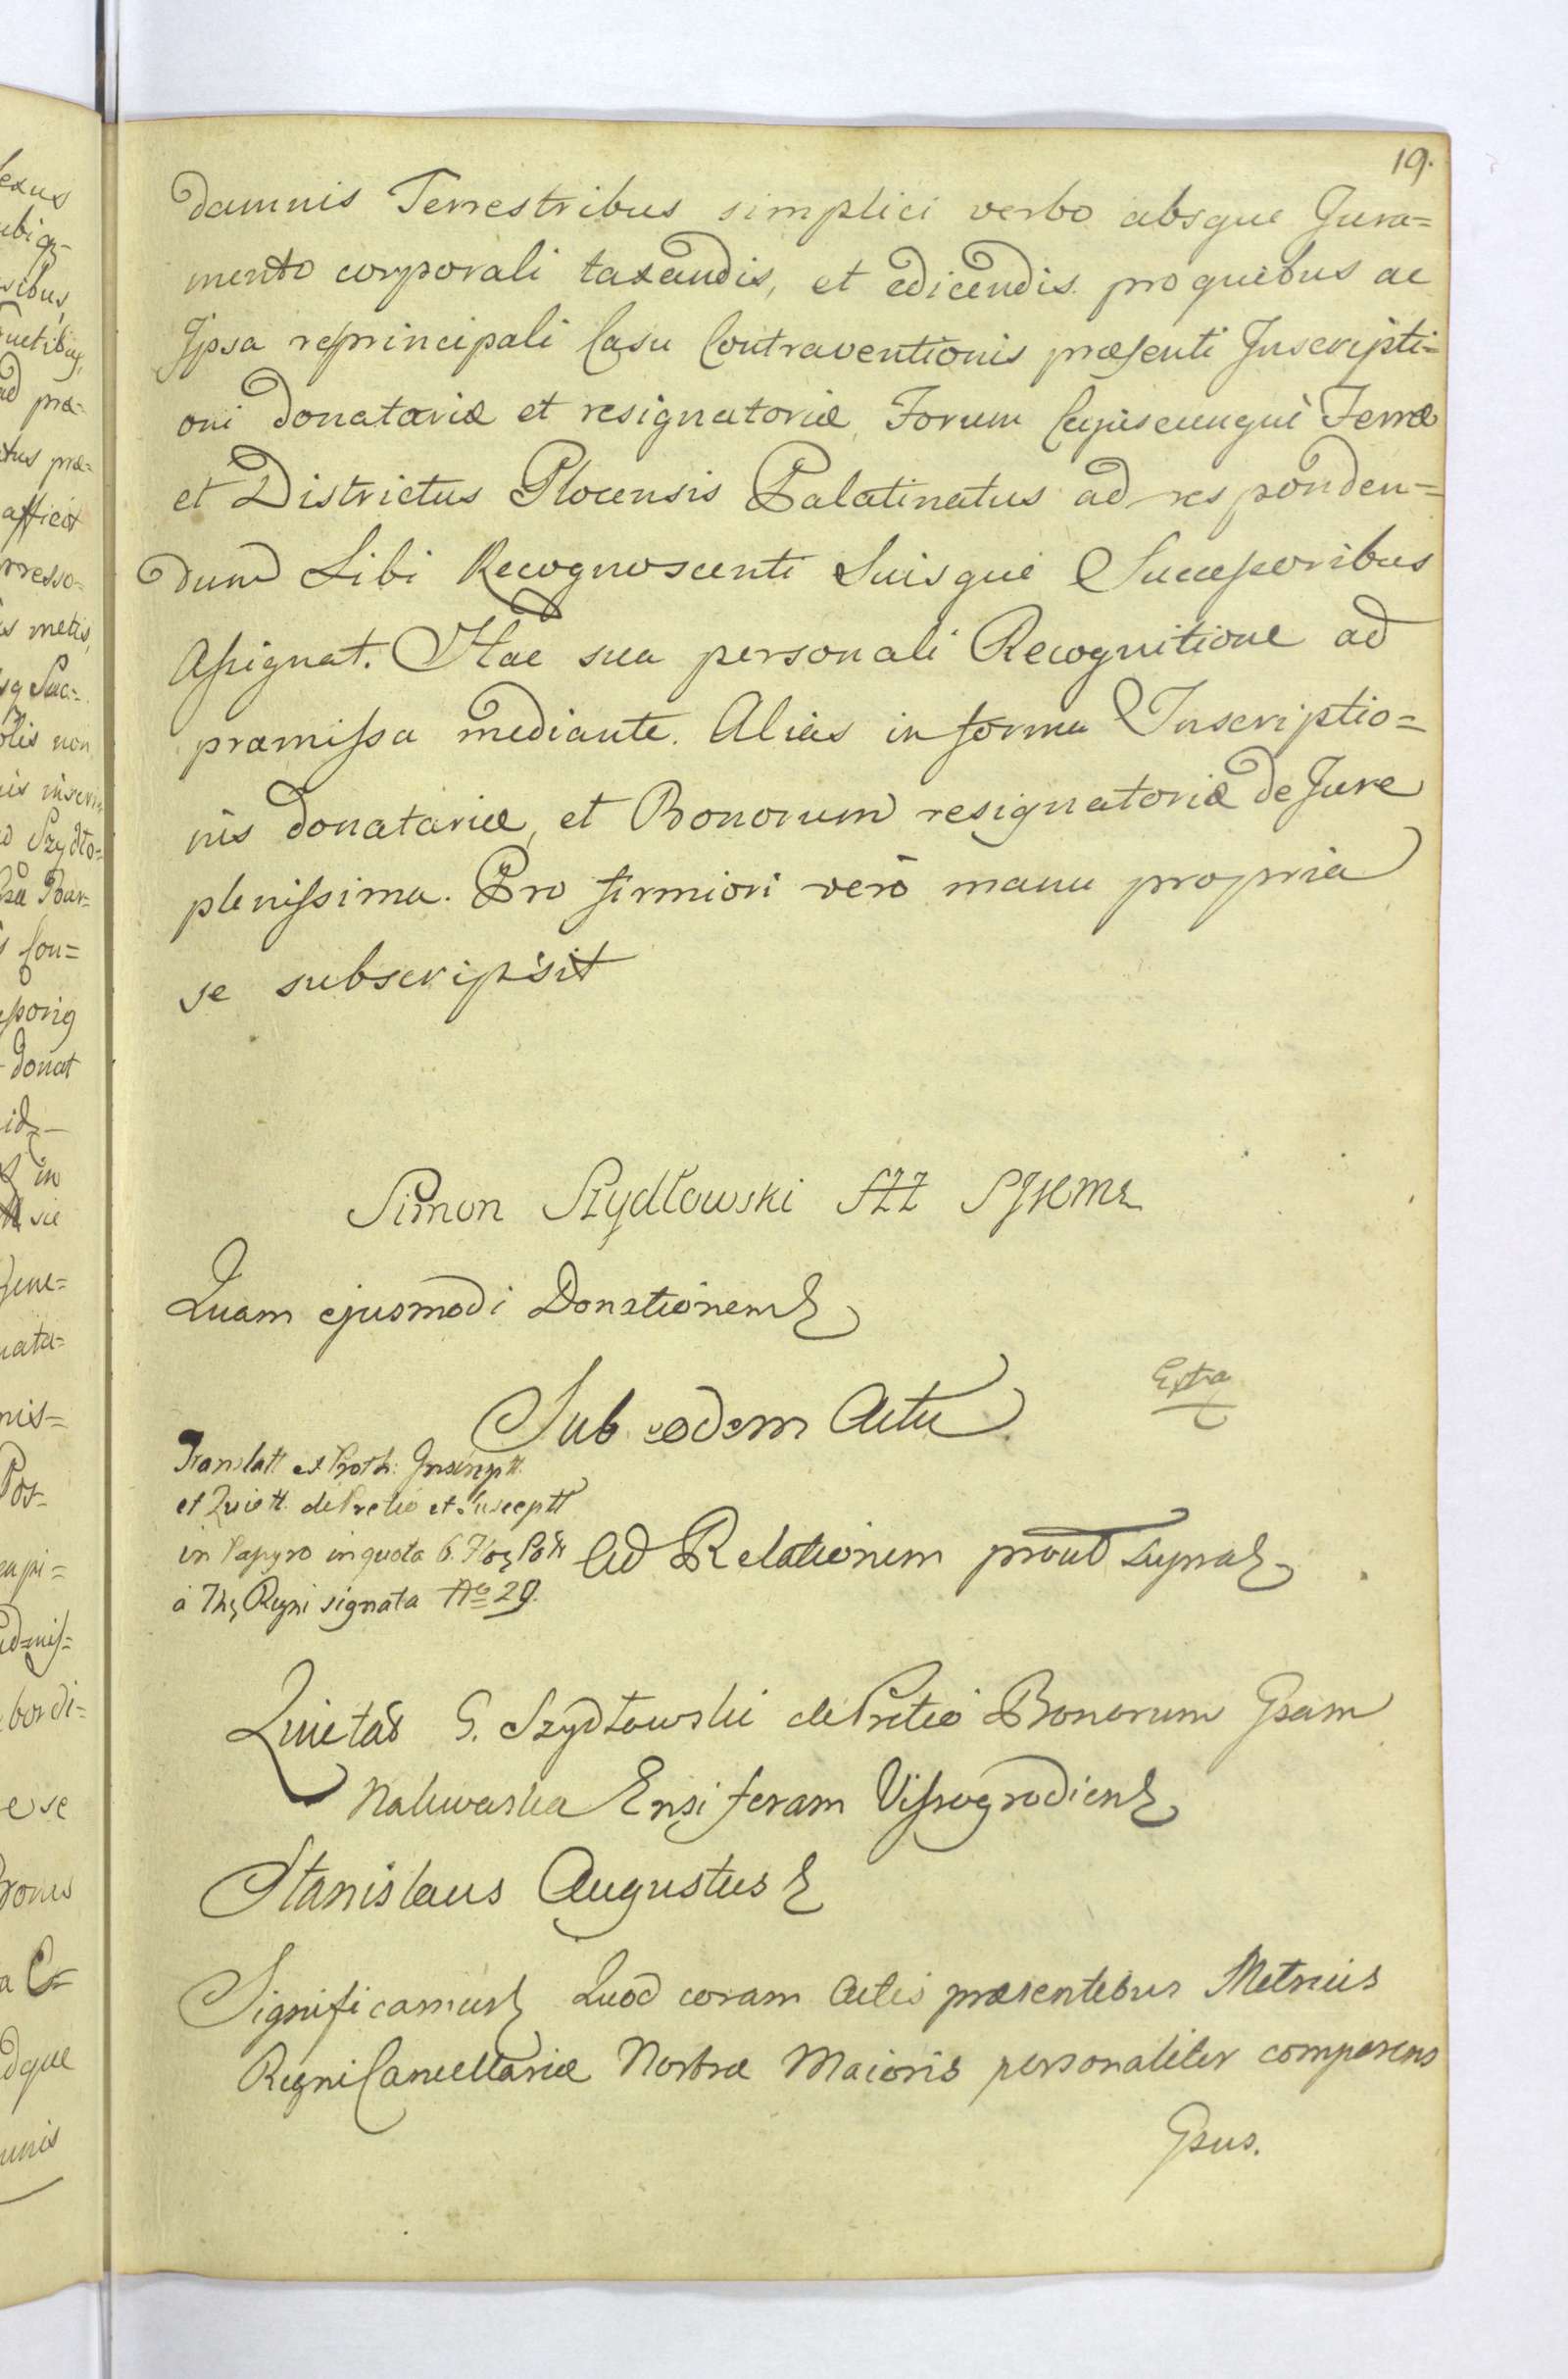 19.
damnis Terrestribus simplici verbo absque Jura=
mento corporali taxandis, et edicendis. pro quibus ac
Ipsa re principali Casu Contraventionis præsenti Inscripti=
oni donatoriæ et resignatoriæ, Forum Cujuscunque Terræ
et Districtus Plocensis Palatinatus ad responden=
dum Sibi Recognoscenti Suisque Successoribus
Assignat. Hac sua personali Recognitione ad
præmissa mediante. Alias in forma Inscriptio=
nis donatoriæ, et Bonorum resignatoriæ de Jure
plenissima. Pro firmiori verò manu propria
se subscripsit
Simon Szydłowski
Quam ejusmodi Donationem
Sub eodem Actu
Extra
Translatt ex Proth: Inscriptt
et Quiett. de Pretio et Susceptt
in Papyro in quota 6.
à Regni signata No 29.
Ad Relationem prout supra
Quietat G. Szydłowski de Pretio Bonorum Gsam
Nakwaska Ensiferam Vissogrodien
Stanislaus Augustus
Significamus Quod coram Actis præsentibus Metrices
Regni Cancellariæ Nostræ Maioris personaliter comparens
Gsus.